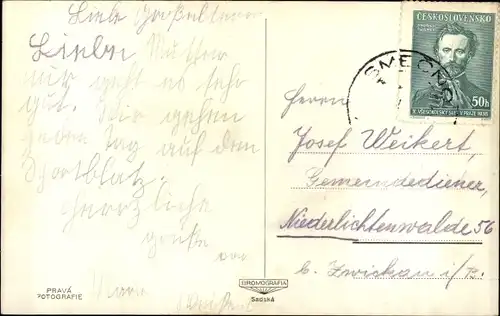 Liebe Großeltern
Lieben
Mir geht es sehr
gut. Wir gehen
jeden Tag auf den
Sportplatz.
Herzliche
Grüße
von
PRAVÁ
FOTOGRAFIE
BROMOGRAFIA
Sadská
ČESKOSLOVENSKO
50h
SMEČNO
Herrn
Josef Weikert,
Gemeindediener,
Niederlichtenwalde 56
b. Zwickau i/B.